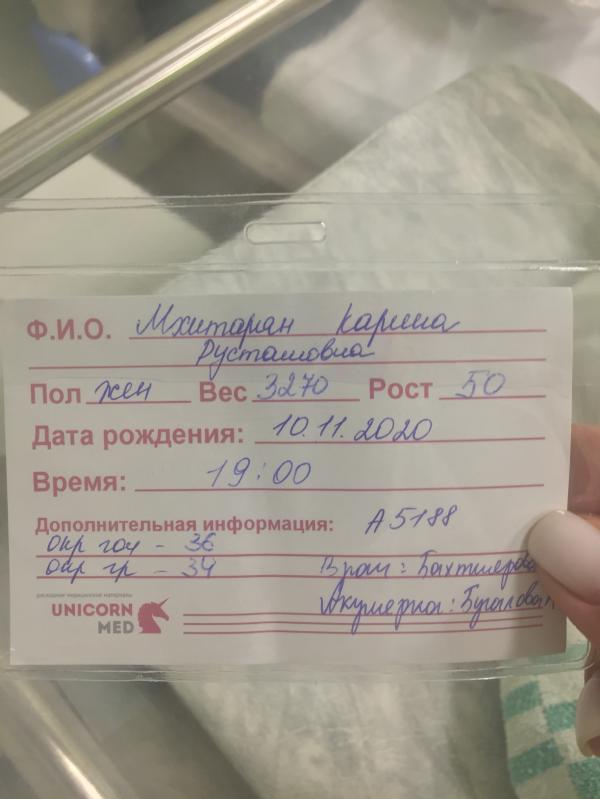 Ф.И.О. Мхитарян Карина
Рустамовна
Пол жен Вес 3270 Рост 50
Дата рождения: 10.11.2020
Время: 19:00
Дополнительная информация: А5188
окр гол - 36
окр гр - 34 Врач:
Акушерка:
рекламно медицинские материалы
UNICORN
MED